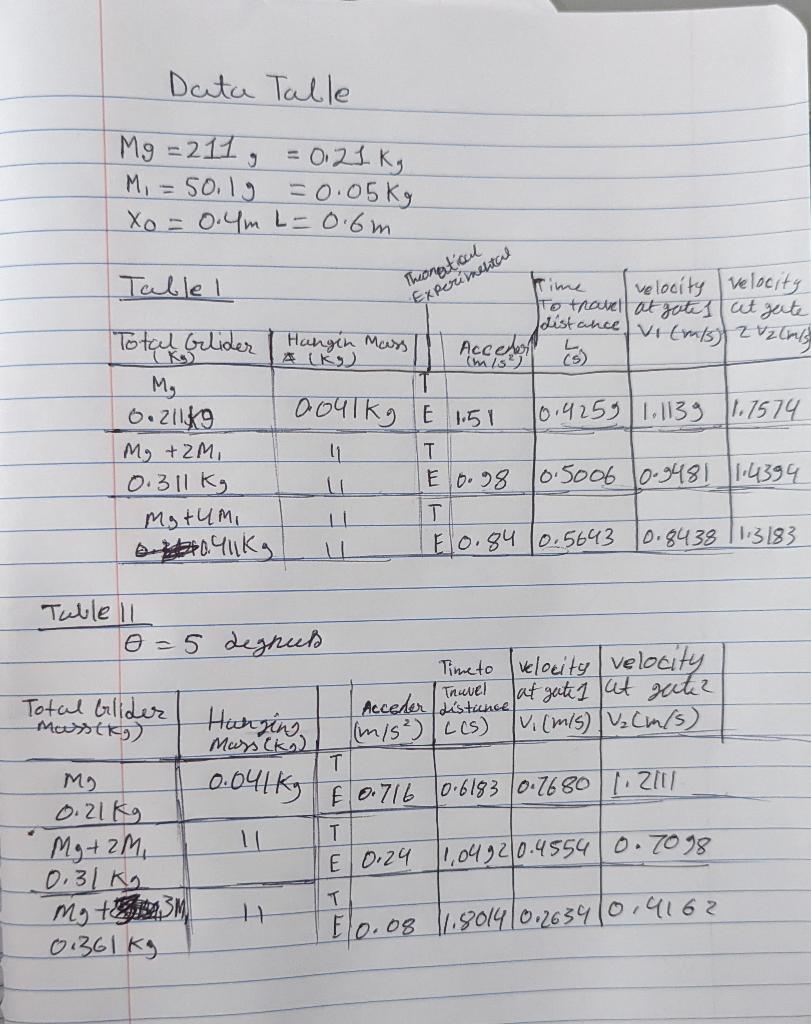 Data Table
Mg = 211 g = 0.21 Kg
M₁ = 50.1g = 0.05Kg
X0 = 0.4m L = 0.6m
Table 1
Theoretical
Experimental
Total Glider (Kg) | Hangin Mass (Kg) | | (m/s²) | Time To travel distance L (s) | velocity at gate 1 V1 (m/s) | velocity at gate 2 V2 (m/s)
Mg T
0.211kg 0.041Kg E 1.51 0.4259 1.1139 1.7574
Mg + 2M₁ 11 T
0.311 Kg 11 E 0.98 0.5006 0.9481 1.4394
Mg + 4M₁ 11 T
0.411Kg 11 E 0.84 0.5643 0.8438 1.3183
Table 11
θ = 5 degrees
Total Glider Mass (Kg) | Hanging Mass (Kg) | | (m/s²) | Time to Travel distance L (s) | velocity at gate 1 V₁ (m/s) | velocity at gate 2 V2 (m/s)
T
Mg 0.041Kg E 0.716 0.6183 0.7680 1.2111
0.21 Kg
Mg + 2M₁ 11 T
E 0.24 1.0492 0.4554 0.7098
0.31 Kg
Mg + 3M₁ 11 T
E 0.08 1.8014 0.2634 0.4162
0.361 Kg